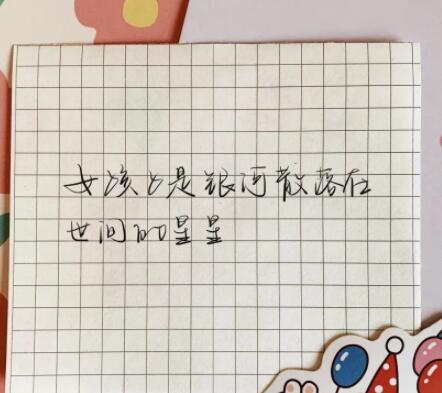 女孩子是银河散落在
世间的星星